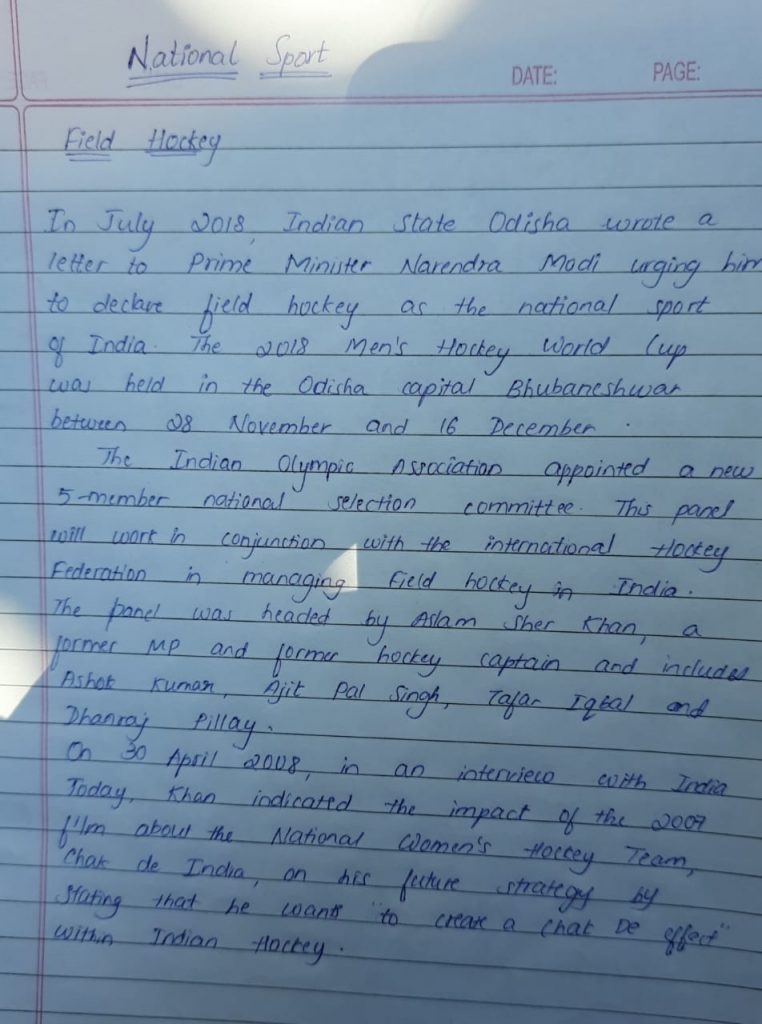 National Sport
DATE: PAGE:
Field Hockey
In July 2018, Indian State Odisha wrote a
letter to Prime Minister Narendra Modi urging him
to declare field hockey as the national sport
of India. The 2018 Men's Hockey World Cup
was held in the Odisha capital Bhubaneshwar
between 28 November and 16 December.
The Indian Olympic Association appointed a new
5-member national selection committee. This panel
will work in conjunction with the international Hockey
Federation in managing field hockey in India.
The panel was headed by Aslam Sher Khan, a
former MP and former hockey captain and includes
Ashok Kumar, Ajit Pal Singh, Zafar Iqbal and
Dhanraj Pillay.
On 30 April 2008, in an interview with India
Today, Khan indicated the impact of the 2007
film about the National Women's Hockey Team,
Chak de India, on his future strategy by
stating that he wants "to create a Chak De effect"
within Indian Hockey.